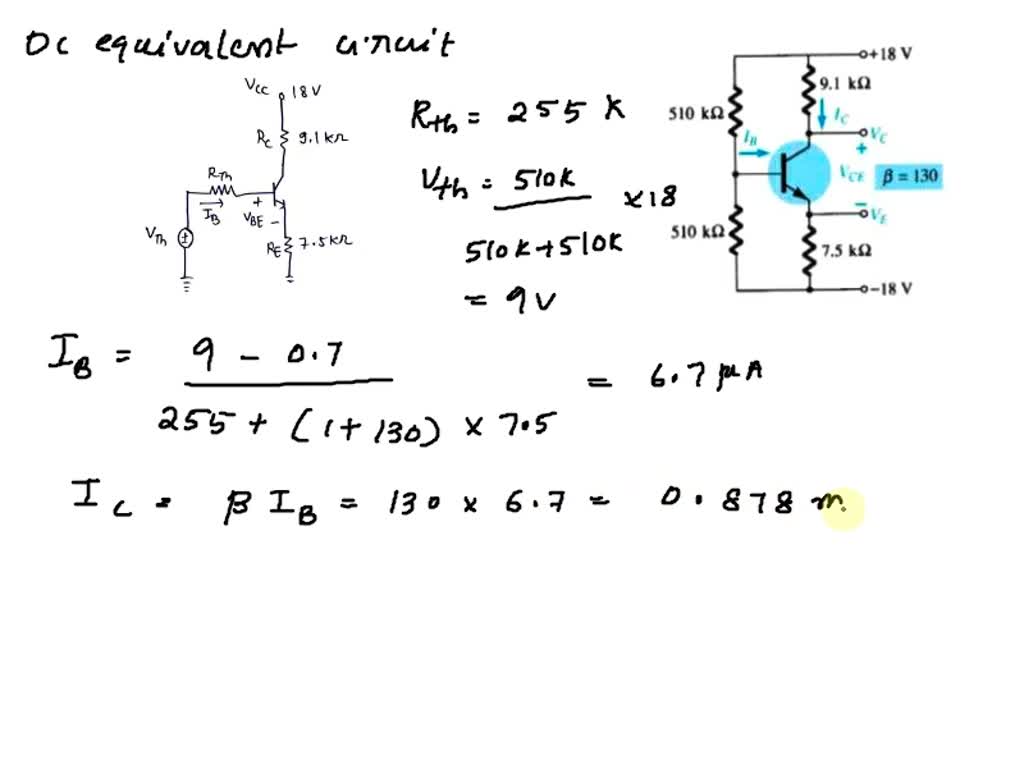 DC equivalent circuit
VCC 18V
RC 9.1kΩ
RTh
IB
+
VBE -
VTh
RE 7.5kΩ
Rth = 255 K
Vth = 510K × 18
510K + 510K
= 9V
+18 V
9.1 kΩ
510 kΩ
IC
IB
VC
+
VCE
β = 130
−
VE
510 kΩ
7.5 kΩ
−18 V
IB = 9 - 0.7 = 6.7 μA
255 + (1 + 130) × 7.5
IC = β IB = 130 × 6.7 = 0.878 m